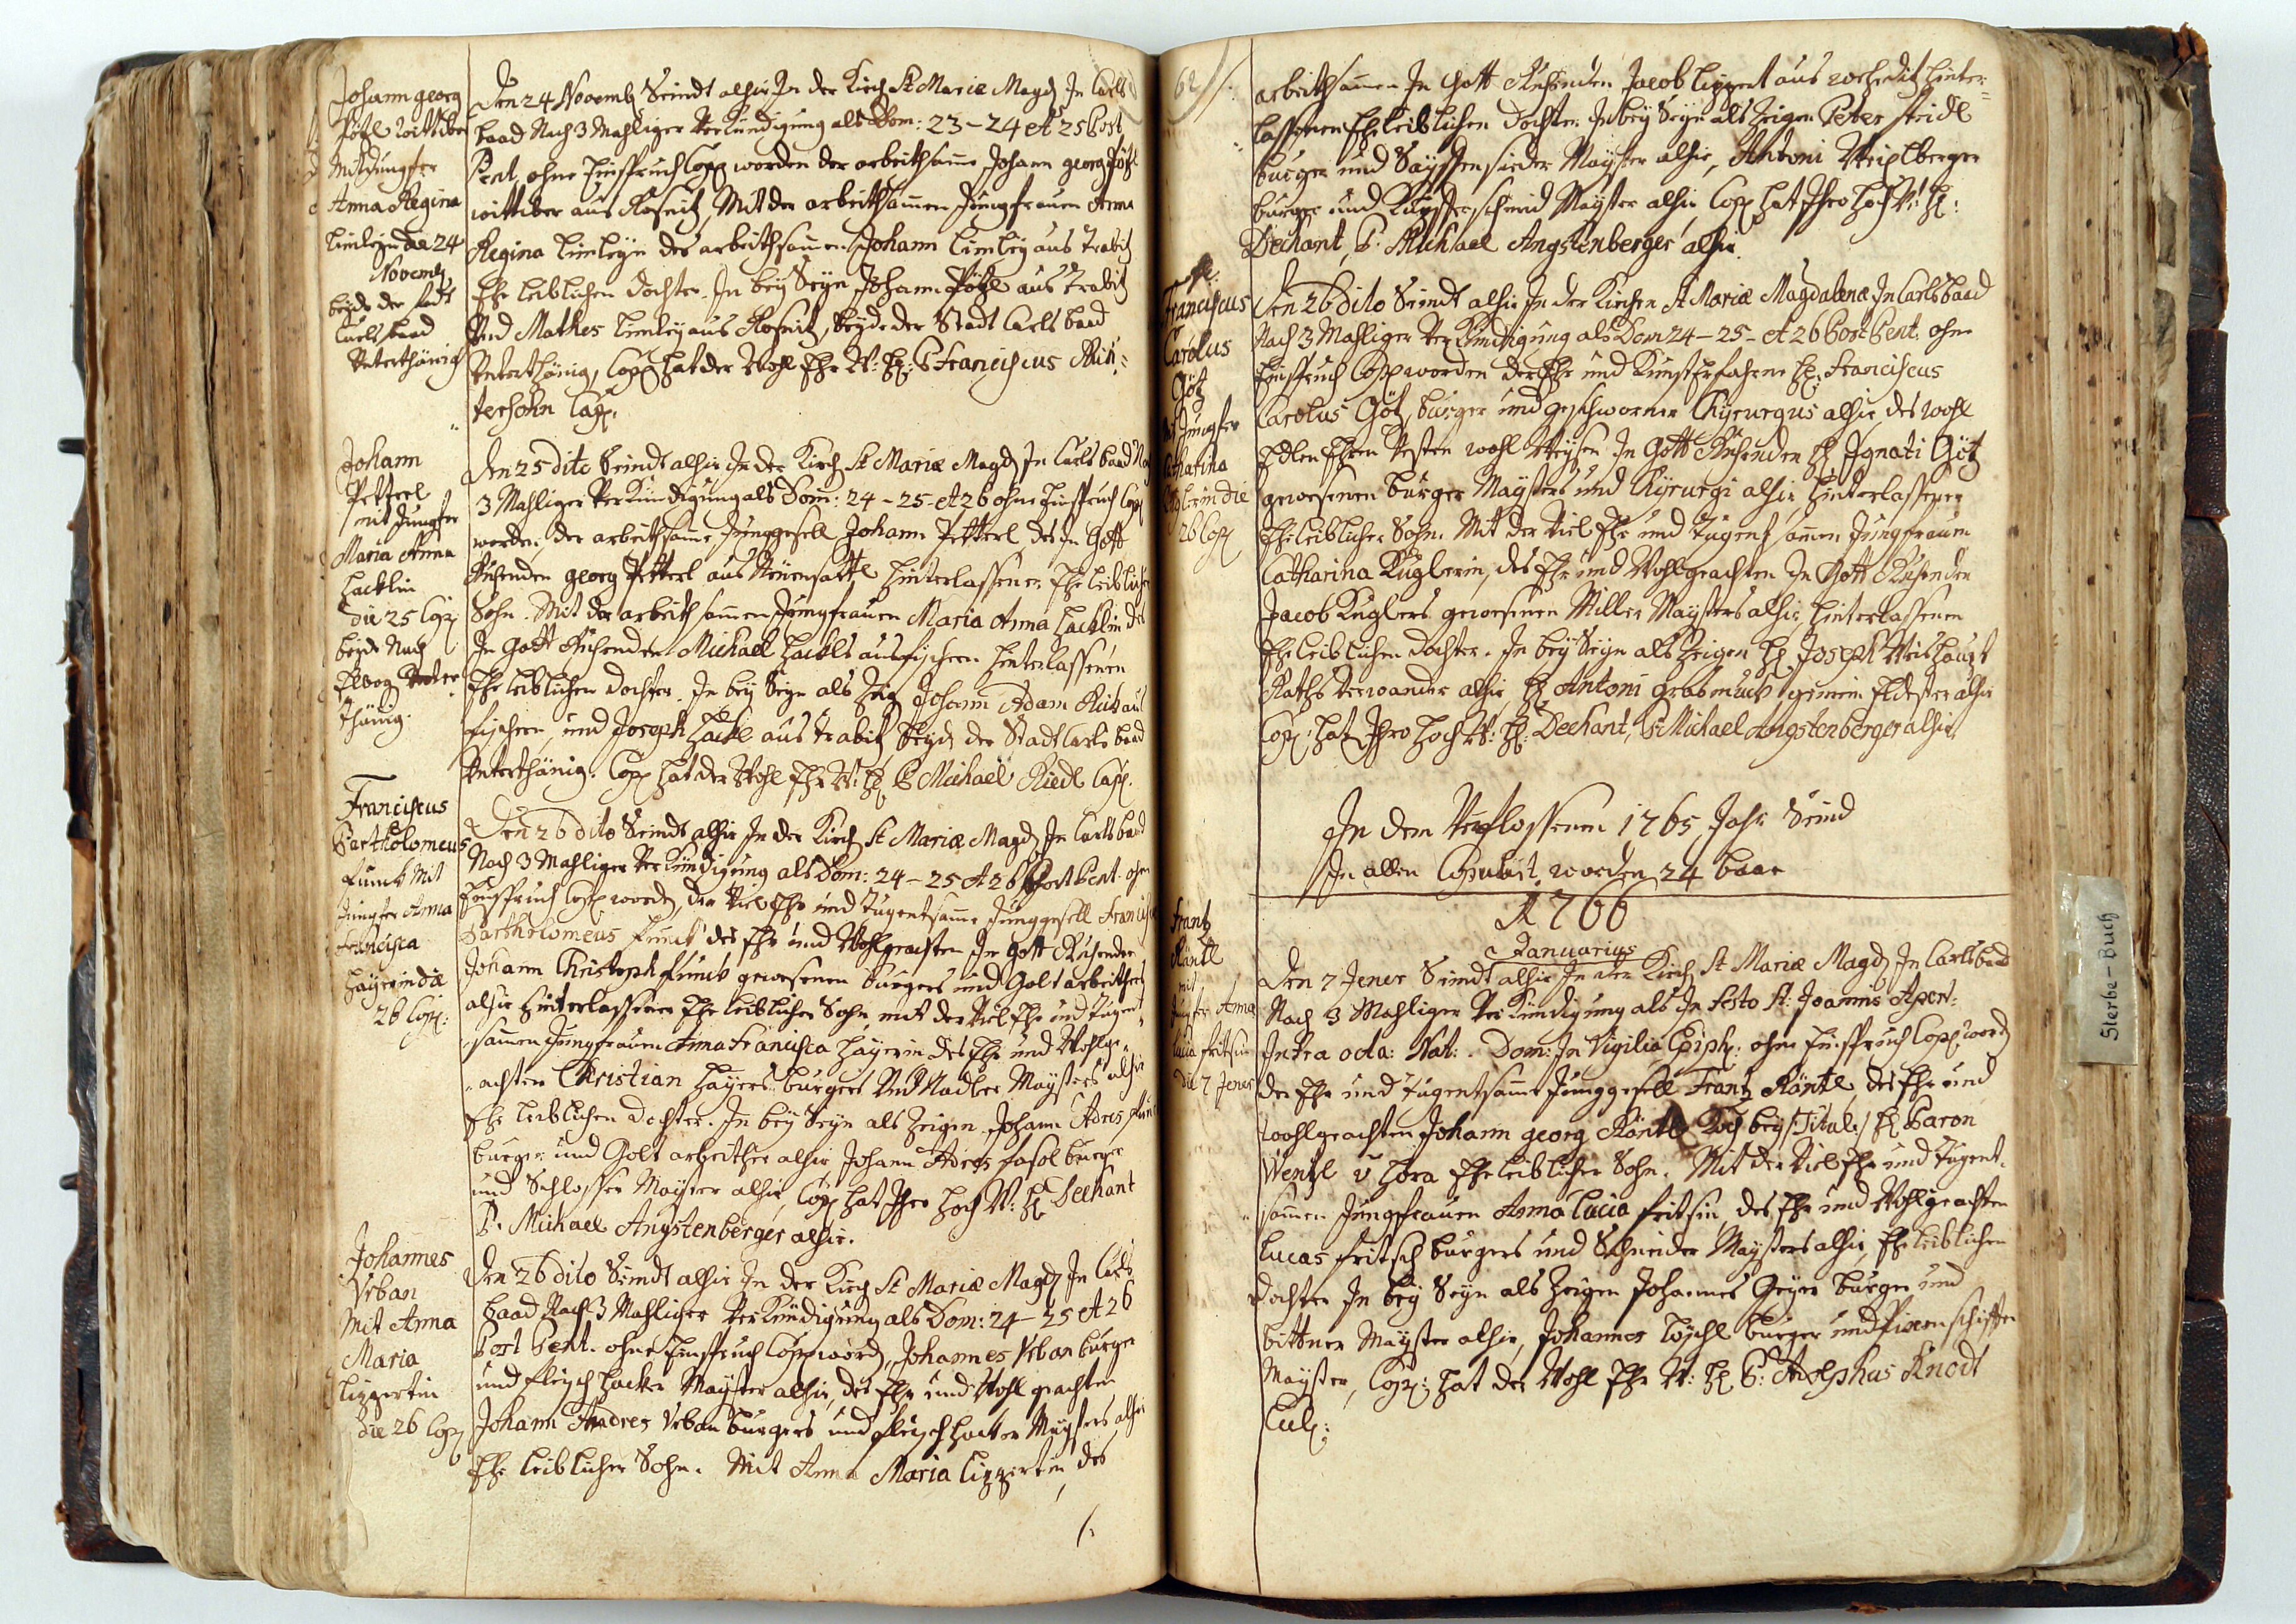 Johann georg
Pözl wittiber
Mit Jungfer
Anna Regina
Limleyin die 24
Novemb
beyde der stadt
Carlsbaad
Unterthänig
Den 24 Novemb Seindt alhir In der Kirch St Mariæ Magd In Carls
baad Nach 3 Mahliger Verkündigung als Dom: 23-24 et 25 Post
Pent. ohne Einspruch Cop worden der arbeithsame Johann georg Pözl
wittiber aus Rosnitz, Mit der arbeithsamen Jungfrauen Anna
Regina Limleyin des arbeithsamen Johann Limley aus Trabitz
Ehe leiblichen Dochter. In bey Seyn Johann Pözl aus Trabitz
Und Mathes Limley aus Rosnitz, beyde der Stadt Carls baad
Unterthänig, Cop hat der Wohl Ehr W: H: P Franciscus Rit-
tersohn Cap.
Johann
Petterl
mit Jungfer
Maria Anna
Hacklin
die 25 Cop
beyde Nach
Elbog Unter
thänig.
Den 25 dito Seindt alhir In der Kirch St Mariæ Magd In Carls baad Nach
3 Mahliger Verkündigung als Dom: 24-25-et 26 ohne Einspruch Cop
worden, der arbeithsame Junggesell Johann Petterl, des In Gott
Ruhenden georg Petterl aus Neuensattl hinterlassener Ehe leiblicher
Sohn. Mit der arbeith samen Jungfrauen Maria Anna Hacklin des
In Gott Ruhenden Michael Hackls aus fischern hinterlassenen
Ehe leiblichen Dochter. In bey Seyn als Zeig Johann Adam aus
fischern, und Joseph Hackl aus Trabitz beyde der Stadt Carls baad
Unterthänig. Cop hat der Wohl Ehr W: H P Michael Riedl Cap.
Franciscus
Bartholomeus
Funck Mit
Jungfer Anna
Francisca
Hayerin die
26 Cop:
Den 26 dito Seindt alhir In der Kirch St Mariæ Magd In Carls baad
Nach 3 Mahliger Verkündigung als Dom: 24-25 et 26 Post Pent. ohne
Einspruch Cop word, der Viel Ehr und Tugentsame Junggesell Francisc
Bartholomeus Funck des Ehr und Wohlgeachten In Gott Ruhenden
Johann Christoph Funck gewesenen burgers und Golt arbeithers
alhir hinterlassener Ehe leiblicher Sohn, mit der Viel Ehr und Tugent
samen Jungfrauen Anna Francisca Hayerin des Ehr und Wohlge-
achten Christian Hayers burgers Und Nadler Maysters alhir
Ehe leiblichen Dochter. In bey Seyn als Zeigen Johann Adres Funck
burger und Golt arbeither alhir, Johann Adres fasol burger
und Schlosser Mayster alhir, Cop hat Ihro Hoch W: H Dechant
P. Michael Angstenberger alhir.
Johannes
Urban
Mit Anna
Maria
Lippertin
die 26 Cop
Den 26 dito Seindt alhir In der Kirch St Mariæ Magd In Carls
baad Nach 3 Mahliger Verkündigung als Dom: 24-25 et 26
Post Pent. ohne Einspruch Cop word, Johannes Urban burger
und fleisch hacker Mayster alhir, des Ehr und Wohl geachten
Johann Andres Urban burgers und fleisch hacker Maysters alhir
Ehe leiblicher Sohn. Mit Anna Maria Lippertin, des
62
arbeithsamen In Gott Ruhenden Jacob Lippert aus hinter-
lassenen Ehe leiblichen Dochter. In bey Seyn als Zeigen Peter
burger und Sayffensieder Mayster alhir, Antoni
burger und Kupferschmid Mayster alhir, Cop hat Ihro Hoch W: H:
Dechant, P. Michael Angstenberger alhir.
Franciscus
Carolus
Götz
mit Jungfer
Catharina
Kuglerin die
26 Cop
Den 26 dito Seindt alhir In der Kirchen St Mariæ Magdalenæ In Carlsbaad
Nach 3 Mahliger Verkündigung als Dom 24-25-et 26 Post Pent. ohne
Einspruch Cop worden der Ehr und Kunst Erfahrne H: Franciscus
Carolus Götz, burger und geschworner Chyrurgus alhir, des Wohl
Edlen Ehren Vesten wohl Weysen In Gott Ruhenden H Ignati Götz
gewesenen burger Maysters und Chyrurgi alhir, hinterlassener
Ehe leiblicher Sohn. Mit der Viel Ehr und Tugent samen Jungfrauen
Catharina Kuglerin, des Ehr und Wohlgeachten In Gott Ruhenden
Jacob Kuglers gewesenen Miller Maysters alhir, hinterlassenen
Ehe leiblichen Dochter. In bey Seyn als Zeigen H Joseph Weishaupt
Raths Verwander alhir, H Antoni grasmuck gemein Eldester alhir
Cop: hat Ihro Hoch W: H: Dechant, P: Michael Angstenberger alhir,
In dem Verflossenen 1765 Jahr Seind
In allen Copulirt worden 24 baar
1766
Januarius
Frantz
Röntl
mit
Jungfer Anna
Lucia fritsin
die 7 Jener
Den 7 Jener Seindt alhir In der Kirch St Mariæ Magd In Carlsbaad
Nach 3 Mahliger Verkündigung als In festo St: Joannis Apost:
Intra octa: Nat: Dom: In Vigilia Epiph: ohne Einspruch Cop word
der Ehr und Tugentsame Junggesell Frantz Röntl, des Ehr und
Wohlgeachten Johann georg Röntl Koch bey /:Titul:/ H Baron
Wentzl v Hora Ehe leiblicher Sohn. Mit der Viel Ehr und Tugent-
samen Jungfrauen Anna Lucia fritsin des Ehr und Wohlgeachten
Lucas fritsch burgers und Schneider Maysters alhir, Ehe leiblichen
Dochter In bey Seyn als Zeigen Johannes Geyer burger und
bittner Mayster alhir, Johannes Löschl burger und
Mayster, Cop: hat der Wohl Ehr W: H P: Adolphus Knodt
Sterbe-Buch